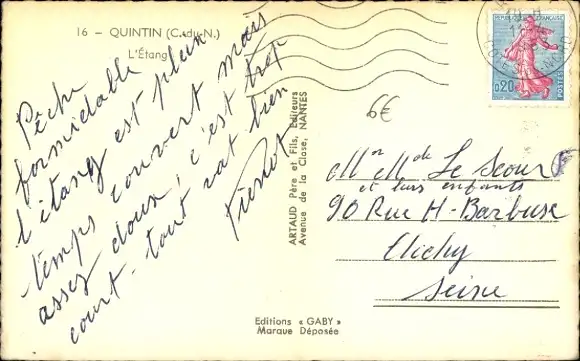 16 - QUINTIN (C.-du-N.)
L'Étang
Pêche
formidable
l'étang est plein
temps couvert mais
assez doux, c'est trop
court - tout vat bien
ARTAUD Père et Fils, Editeurs
Avenue de la Close, NANTES
Editions « GABY »
Marque Déposée
REPUBLIQUE FRANÇAISE
0,20
POSTES
6€
Mr Mde Le Scour
et leurs enfants
90 Rue H-Barbusse
Clichy
Seine